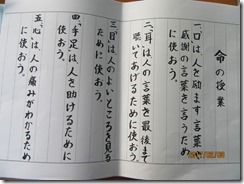 命の授業
一、口は人を励ます言葉や
感謝の言葉を言うため
に使おう。
二、耳は人の言葉を最後まで
聴いてあげるために使おう。
三、目は人のよいところを見る
ために使おう。
四、手足は人を助けるために
使おう。
五、心は人の痛みがわかるため
に使おう。